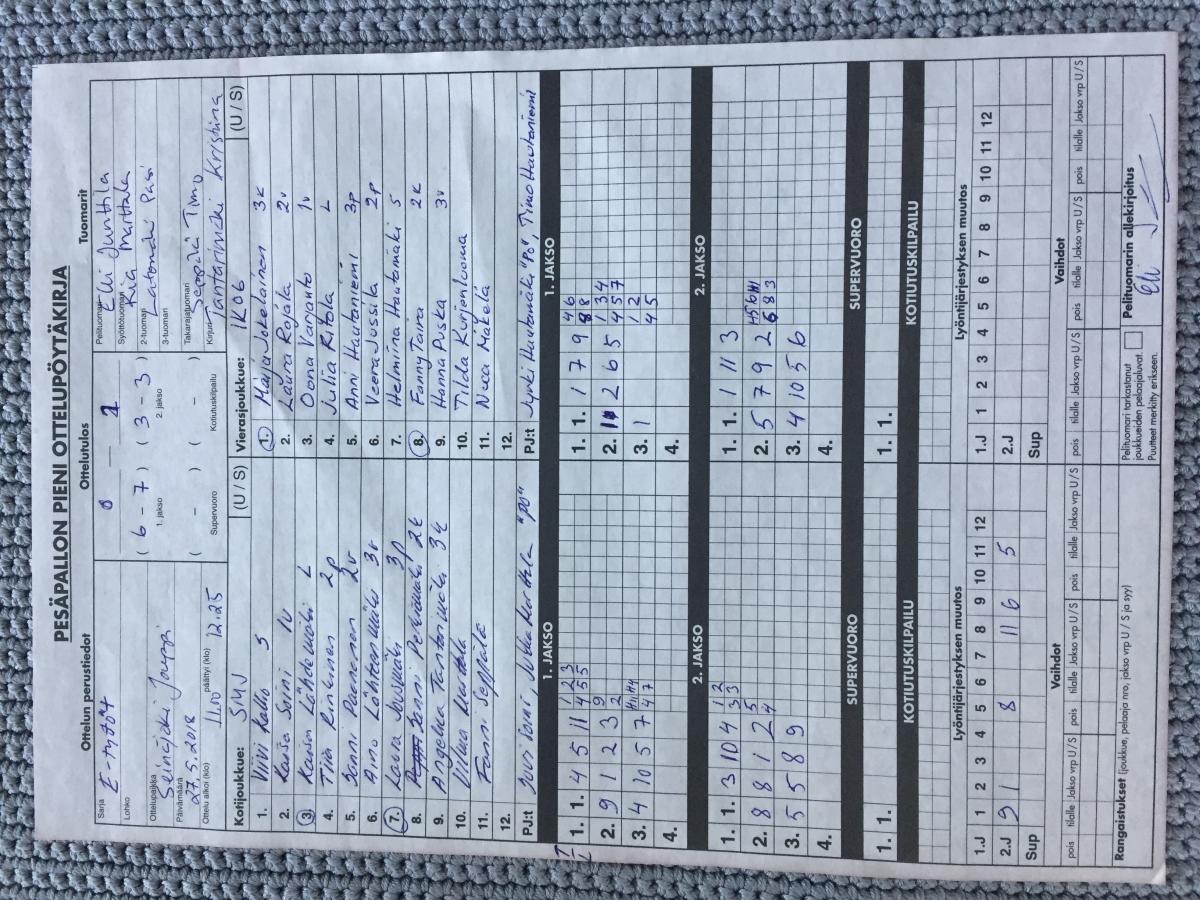 PESÄPALLON PIENI OTTELUPÖYTÄKIRJA
Ottelun perustiedot
Ottelutulos
Tuomarit
Sarja
Lohko
Ottelupaikka Seinäjoki
Päivämäärä 27.5.2018
Ottelu alkoi (klo) 11.00 päättyi (klo) 12.25
0 — 2
( 6 - 7 ) ( 3 - 3 )
1. jakso 2. jakso
( - ) ( - )
Supervuoro Kotiutuskilpailu
Pelituomari Elli Junttila
Syöttötuomari Kiia Marttala
2-tuomari Latomäki Pasi
3-tuomari
Takarajatuomari Seppälä Timo
Kirjuri Tantarimäki Kristiina
Kotijoukkue: SMJ (U / S)
1. Viivi Kallio 5
2. Kaisa Soini 1v
3. Kaisa Lähdemäki L
4. Tiia Rinkinen 2p
5. Sonni Paananen 2v
6. Aino Lähteenmäki 3v
7. Laura Jouppila 3p
8. Jenni Perämäki 2k
9. Angelica Tantarimäki 3k
10.
11. Fanni Seppälä
12.
PJ:t Jukka "PJ"
Vierasjoukkue: IK06 (U / S)
1. Maija Jokelainen 3k
2. Laura Rajala 2v
3. Oona Varjonto 1v
4. Julia Ritola L
5. Anni Hautaniemi 3p
6. Veera Jossila 2p
7. Helmiina Hautamäki 5
8. Fanny Taira 2k
9. Hanna Puska 3v
10. Tilda Kurjenluoma
11. Neea Mäkelä
12.
PJ:t Jyrki Hautamäki "PJ", Timo Hautaniemi
1. JAKSO
1. 1. 4 5 11
2. 9 1 2 3
3. 4 10 5 7
4.
1. JAKSO
1. 1. 1 7 9
2. 2 6 5
3. 1
4.
2. JAKSO
1. 1. 3 10 4
2. 8 8 1 2
3. 5 5 8 9
4.
2. JAKSO
1. 1. 1 11 3
2. 5 7 9 2
3. 4 10 5 6
4.
SUPERVUORO
1. 1.
SUPERVUORO
1. 1.
KOTIUTUSKILPAILU
KOTIUTUSKILPAILU
Lyöntijärjestyksen muutos
1.J 1 2 3 4 5 6 7 8 9 10 11 12
2.J 9 1 8 11 6 5
Sup
Lyöntijärjestyksen muutos
1.J 1 2 3 4 5 6 7 8 9 10 11 12
2.J
Sup
Vaihdot
pois tilalle Jakso vrp U / S pois tilalle Jakso vrp U / S pois tilalle Jakso vrp U / S
Vaihdot
pois tilalle Jakso vrp U / S pois tilalle Jakso vrp U / S pois tilalle Jakso vrp U / S
Rangaistukset (joukkue, pelaaja nro, jakso vrp U / S ja syy)
Pelituomari tarkastanut
joukkueiden pelaajaluvat.
Puutteet merkitty erikseen.
Pelituomarin allekirjoitus
Elli